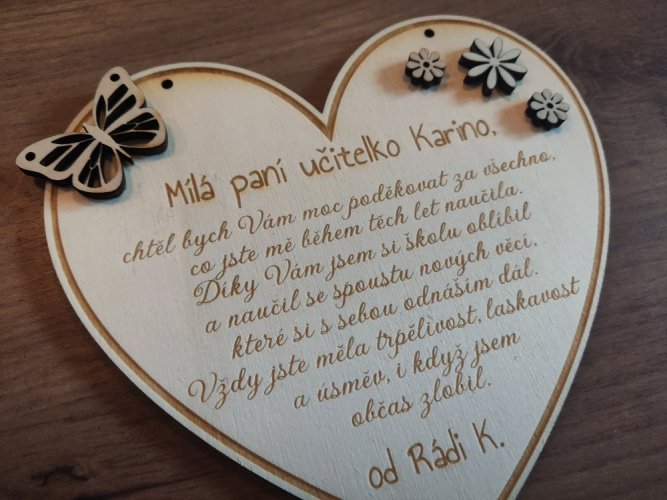 Milá paní učitelko Karino,
chtěl bych Vám moc poděkovat za všechno,
co jste mě během těch let naučila.
Díky Vám jsem si školu oblíbil
a naučil se spoustu nových věcí,
které si s sebou odnáším dál.
Vždy jste měla trpělivost, laskavost
a úsměv, i když jsem
občas zlobil.
od Rádi K.